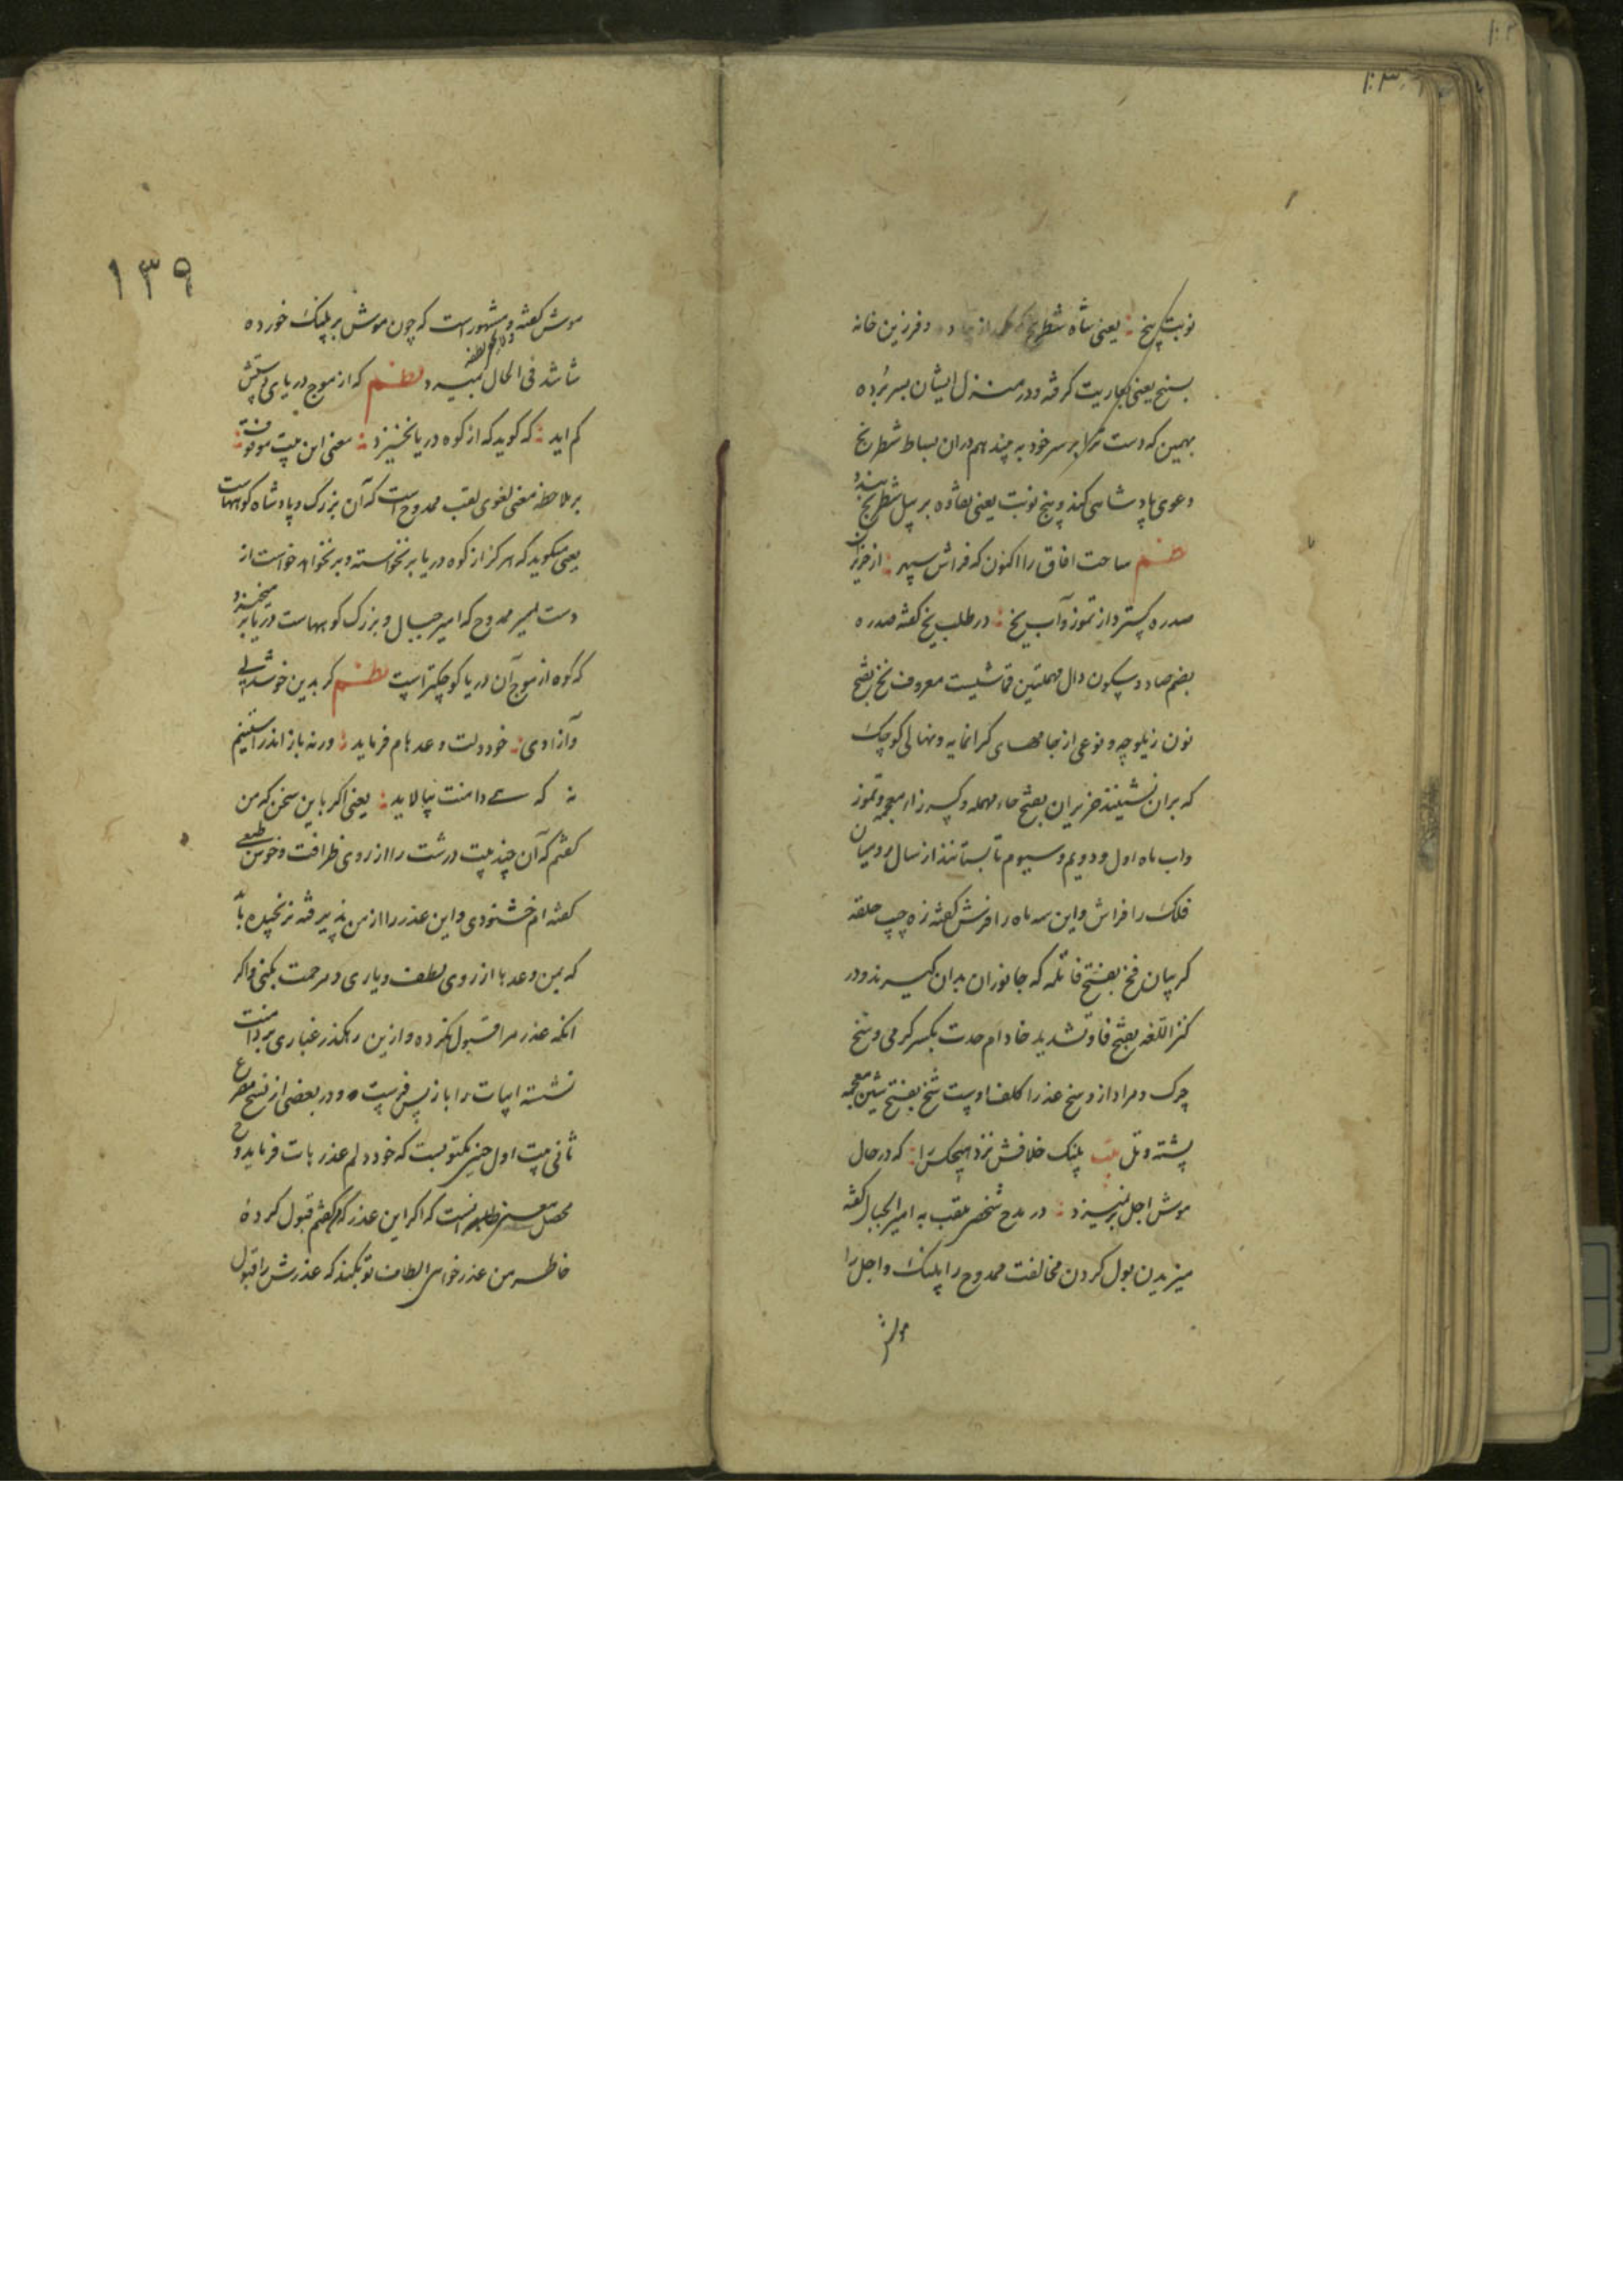 ۱۰۳
نوبت پنج یعنی شاه شطرنج و فرزین خانه
بسنج یعنی بعاریت گرفته و در منزل ایشان بسر برده
بهمین که دست ترا بر سر خود به چند هم دران بساط شطرنج
دعوی پادشاهی کند و پنج نوبت یعنی نقاره بر پیل شطرنج
نظم ساحت افاق را اکنون که فراش سپهر از حزیران
صدره گسترد از تموز و آب نخ در طلب یخ گفته صدره
بضم صاد و سکون دال مهملتین قماشیست معروف نخ بفتح
نون زیلوچه و نوعی از جامهای گرانمایه و نهالی کوچک
که بران نشینند حزیران بفتح حاء مهمله و کسر زاء معجمه و تموز
واب ماه اول و دویم و سیوم تابستانند از سال رومیان
فلک را فراش و این سه ماه را فرش گفته زه جیب حلقه
گریبان فخ بفتح فا تله که جانوران بدان گیرند و در
کنز اللغه بفتح فا و تشدید خا دام حدت بکسر گرمی وسخ
چرک و مراد از وسخ عذرا کلف اوست شخ بفتح شین معجمه
پشته و تل بیت پلنگ خلافش نزد هیچکس را که در حال
موش اجل بر نمیزد در مدح شخصی ملقب به امیر الجبال گفته
میزیدن بول کردن مخالفت ممدوح را پلنگ و اجل را
موش
۱۳۹
موش گفته و مشهور است که چون موش بر پلنگ خورده
شاشد فی الحال بمیرد نظم که از موج دریای دستش
کم اید که گوید که از کوه دریا نخیزد معنی این بیت موقوف
بر ملاحظه معنی لغوی لقب ممدوح است که آن بزرگ و پادشاه کوههاست
یعنی میگوید که هرگز از کوه دریا بر نخواسته و بر نخواهد خواست از
دست امیر ممدوح که امیر جبال و بزرگ کوههاست دریا بر میخیزد
که کوه از موج آن دریا کوچکتر است نظم گر بدین خوشدلی
و آزادی خود دلت وعدهام فرماید ورنه باز اندر استینم
نه که دامنت نیالاید یعنی اگر باین سخن که من
گفتم که آن چند بیت درشت را از روی ظرافت و خوش طبعی
گفته ام خشنودی و این عذر را از من پذیرفته نرنجیده باشی
که بمن وعدها از روی لطف و یاری و مرحمت بکنی واگر
انکه عذر مرا قبول نکرده و ازین رهگذر غباری بر دامنت
نشسته ابیات را باز پس فرست و در بعضی از نسخ مصرع
ثانی بیت اول چنین مکتوبست که خود دلم عذرهات فرماید و
محصل معنی انست که اگر این عذر که گفتم قبول کرده
خاطر من عذر خواهی الطاف تو بکند که عذرش را قبول